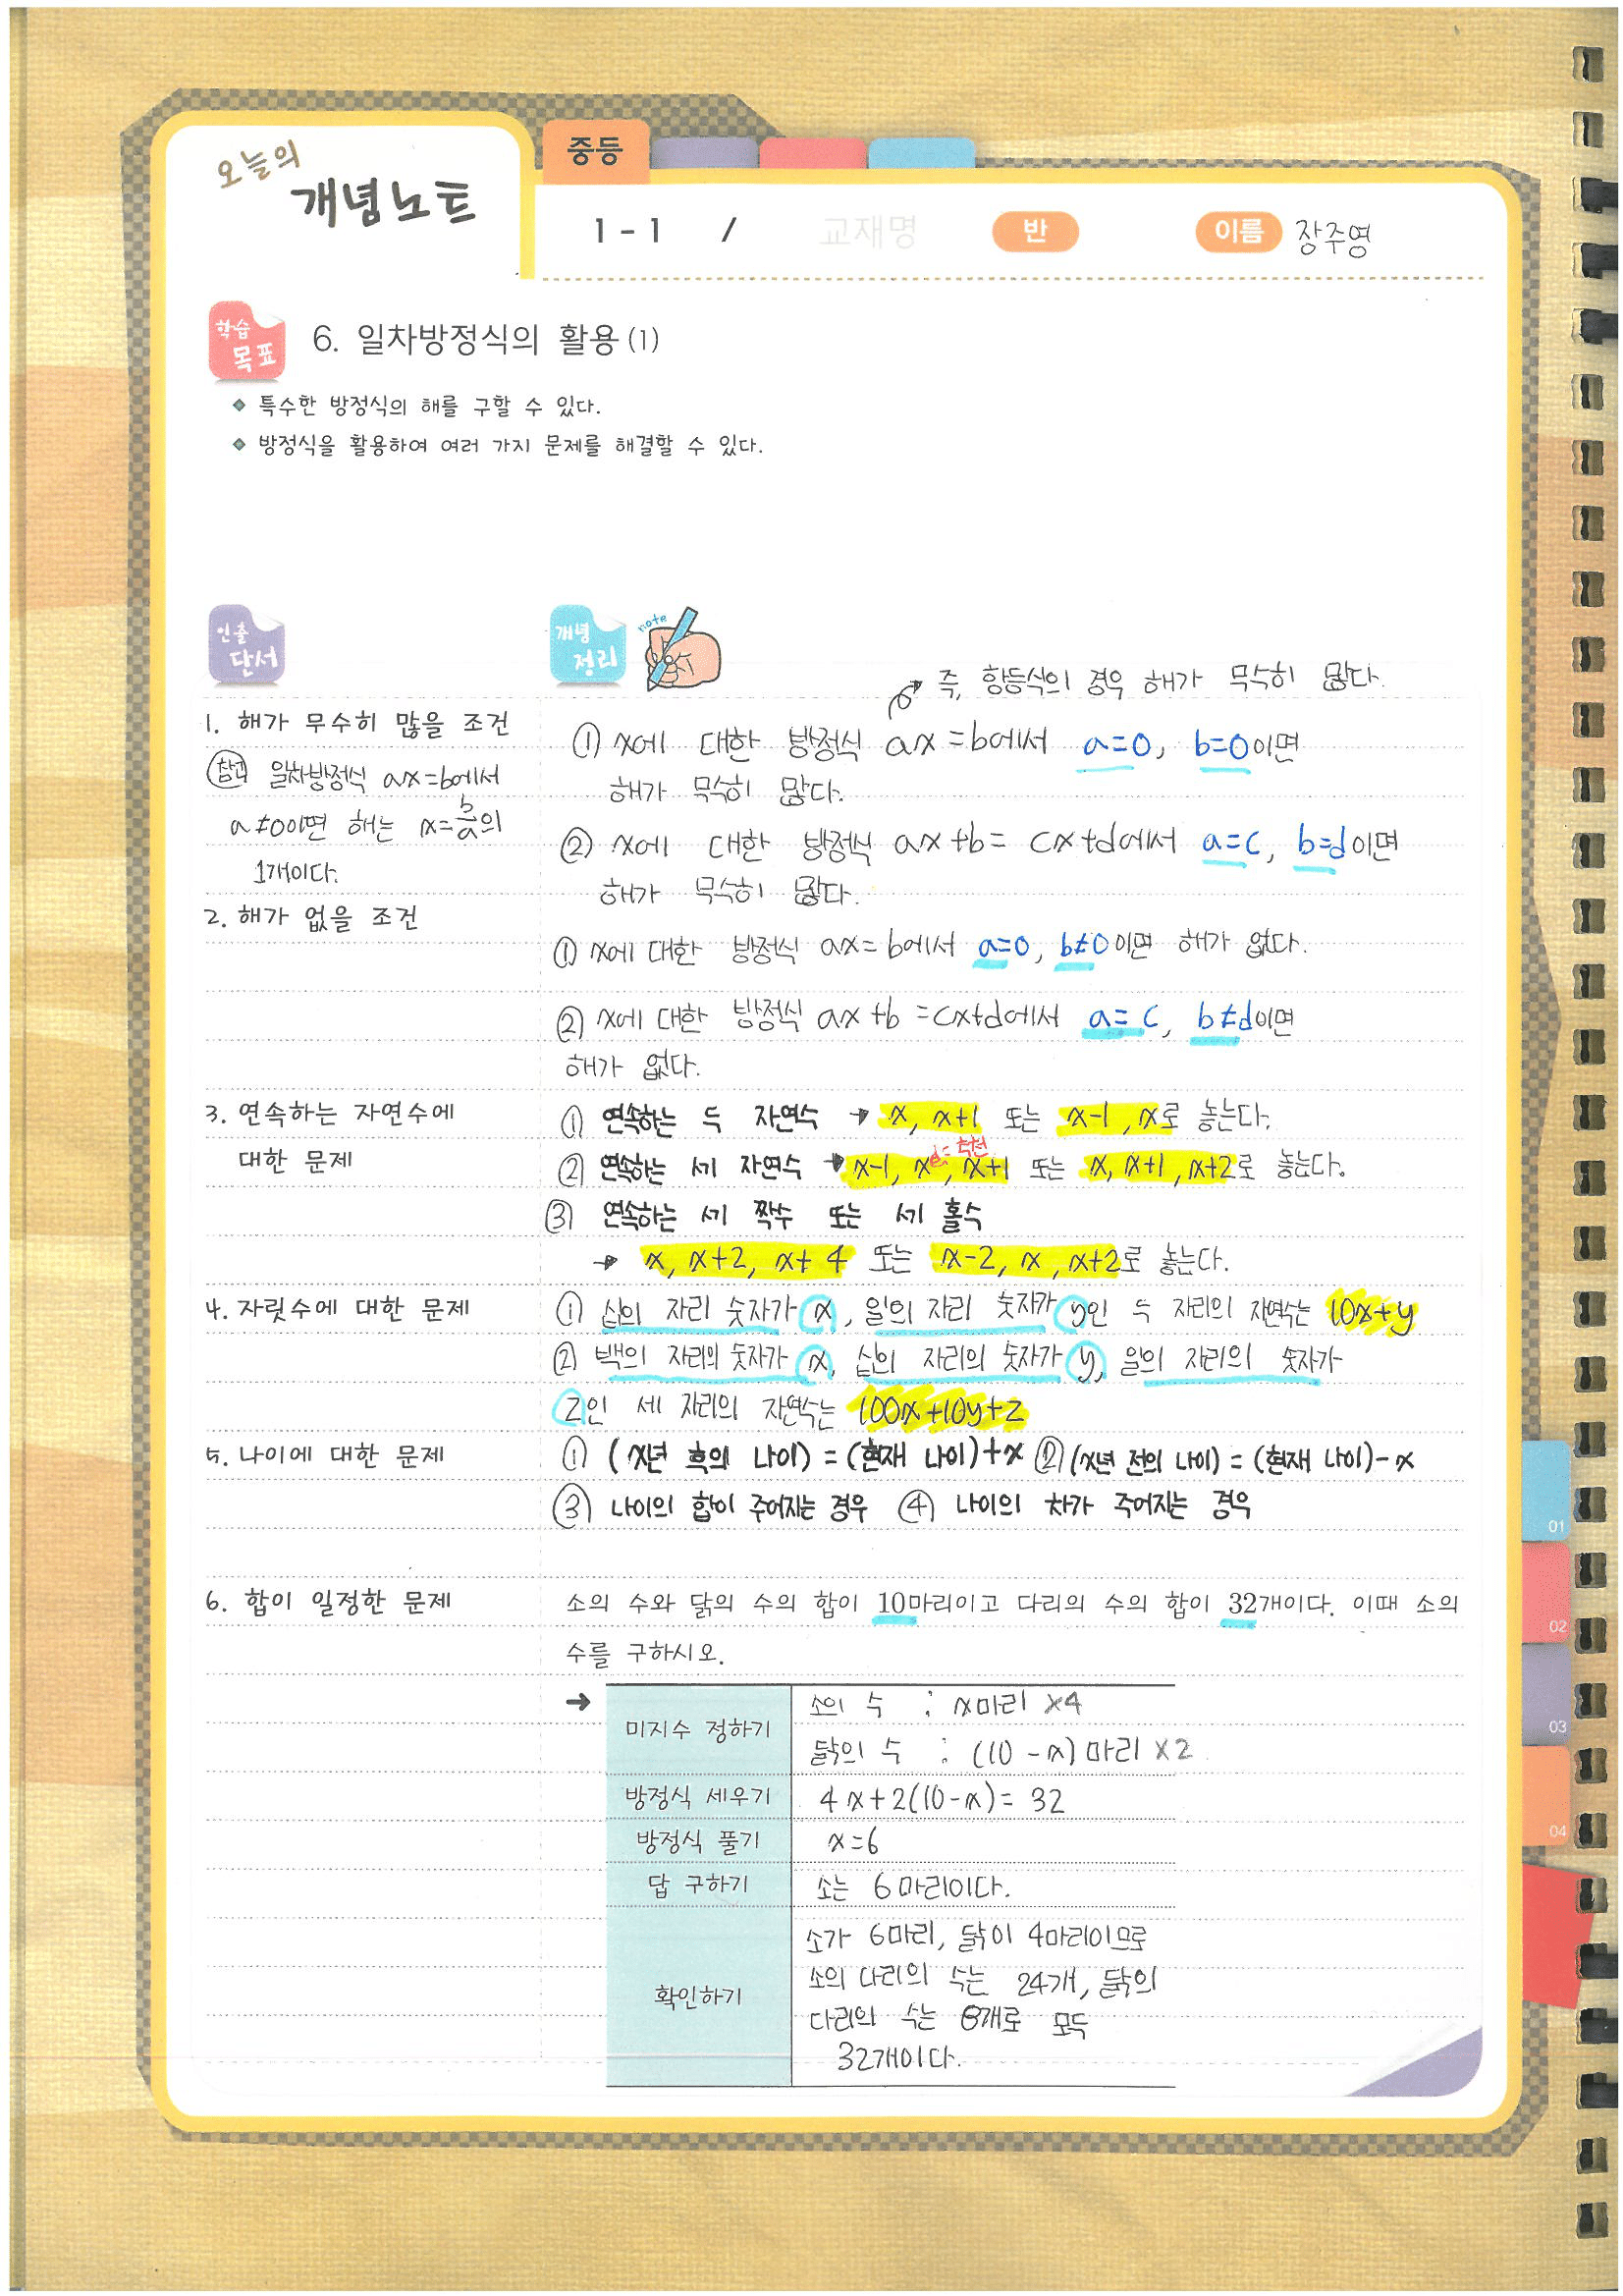 오늘의
개념노트
중등
1-1 / 교재명 반 이름 장주영
학습
목표
6. 일차방정식의 활용(1)
특수한 방정식의 해를 구할 수 있다.
방정식을 활용하여 여러 가지 문제를 해결할 수 있다.
인출
단서
개념
정리
note
즉, 항등식의 경우 해가 무수히 많다.
1. 해가 무수히 많을 조건
참고 일차방정식 ax=b에서
a≠0이면 해는 x=b/a의
1개이다.
① x에 대한 방정식 ax=b에서 a=0, b=0이면
해가 무수히 많다.
② x에 대한 방정식 ax+b= cx+d에서 a=c, b=d이면
해가 무수히 많다.
2. 해가 없을 조건
① x에 대한 방정식 ax=b에서 a=0, b≠0이면 해가 없다.
② x에 대한 방정식 ax+b=cx+d에서 a=c, b≠d이면
해가 없다.
3. 연속하는 자연수에
대한 문제
① 연속하는 두 자연수 → x, x+1 또는 x-1, x로 놓는다.
추천
② 연속하는 세 자연수 → x-1, x, x+1 또는 x, x+1, x+2로 놓는다.
③ 연속하는 세 짝수 또는 세 홀수
→ x, x+2, x+4 또는 x-2, x, x+2로 놓는다.
4. 자릿수에 대한 문제
① 십의 자리 숫자가 x, 일의 자리 숫자가 y인 두 자리의 자연수는 10x+y
② 백의 자리의 숫자가 x, 십의 자리의 숫자가 y, 일의 자리의 숫자가
z인 세 자리의 자연수는 100x+10y+z
5. 나이에 대한 문제
① (x년 후의 나이)=(현재 나이)+x ② (x년 전의 나이)=(현재 나이)-x
③ 나이의 합이 주어지는 경우 ④ 나이의 차가 주어지는 경우
6. 합이 일정한 문제
소의 수와 닭의 수의 합이 10마리이고 다리의 수의 합이 32개이다. 이때 소의
수를 구하시오.
→ 미지수 정하기
소의 수 : x마리 ×4
닭의 수 : (10-x)마리 ×2
방정식 세우기 4x+2(10-x)= 32
방정식 풀기 x=6
답 구하기 소는 6마리이다.
확인하기
소가 6마리, 닭이 4마리이므로
소의 다리의 수는 24개, 닭의
다리의 수는 8개로 모두
32개이다.
01
02
03
04